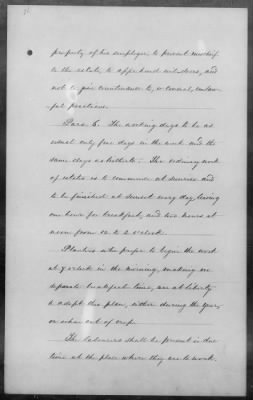 property of his employer, to prevent mischief
to the estate, to apprehend evil-doers, and
not to give countenance to, or conceal, unlaw-
ful practices.
Para 5. The working days to be as
usual only five days in the week and the
same days as hitherto. The ordinary work
of estates is to commence at sunrise and
to be finished at sunset every day, leaving
one hour for breakfast, and two hours at
noon from 12 to 2 o'clock.
Planters who prefer to begin the work
at 7 o'clock in the morning, making no
separate breakfast time, are at liberty
to adopt this plan, either during the year,
or when out of crop.
The laborers shall be present in due
time at the place where they are to work.